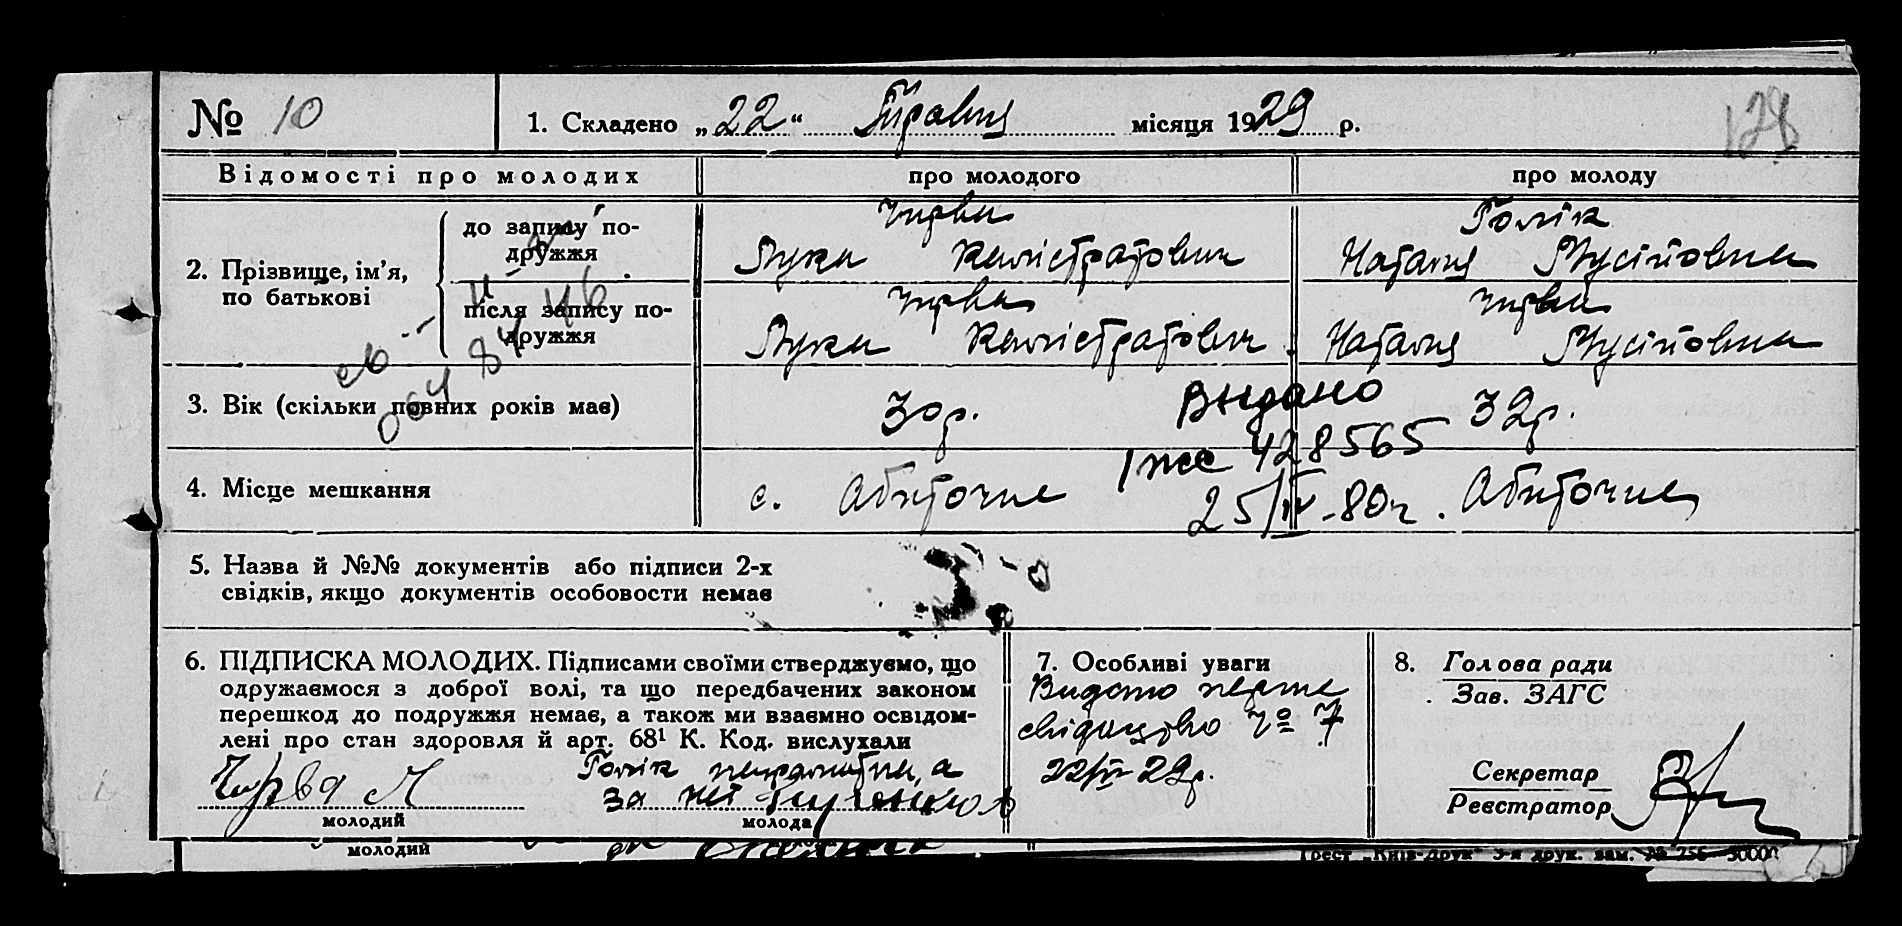 № 10
1. Складено „22“ Травня місяця 1929 р.
128
Відомості про молодих
про молодого
про молоду
2. Прізвище, ім’я, по батькові
до запису подружжя
Чирва
Лука Калістратович
Голік
Наталия Мусійовна
після запису подружжя
Чирва
Лука Калістратович
Чирва
Наталия Мусійовна
3. Вік (скільки повних років має)
30 р.
32 р.
Выдано
428565
25/IV-80г.
4. Місце мешкання
с. Абиточне
Абиточне
5. Назва й №№ документів або підписи 2-х
свідків, якщо документів особовости немає
6. ПІДПИСКА МОЛОДИХ. Підписами своїми стверджуємо, що
одружаємося з доброї волі, та що передбачених законом
перешкод до подружжя немає, а також ми взаємно освідом-
лені про стан здоровля й арт. 68¹ К. Код. вислухали
Чирва Л
Голік неграмотна, а
за неї
молодий
молода
7. Особливі уваги
Видато перше
свідоцтво № 7
22/V 29р.
8. Голова ради
Зав. ЗАГС
Секретар
Реєстратор
молодий
Трест „Київ-Друк“ 3-я друк. зам. № 755—50000